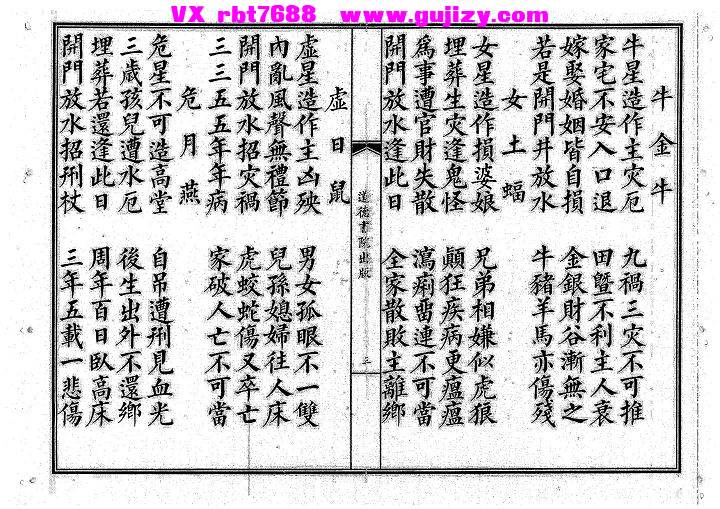 VX rbt7688 www.gujizy.com
牛金牛
牛星造作主灾厄 九禍三灾不可推
家宅不安入口退 田蠶不利主人衰
嫁娶婚姻皆自損 金銀財谷漸無之
若是開門并放水 牛豬羊馬亦傷殘
女土蝠
女星造作損婆娘 兄弟相嫌似虎狼
埋葬生灾逢鬼怪 顛狂疾病更瘟瘟
為事遭官財失散 瀉痢畱連不可當
開門放水逢此日 全家散敗主離鄉
道德書院出版
三
虛日鼠
虛星造作主凶殃 男女孤眠不一雙
內亂風聲無禮節 兒孫媳婦往人床
開門放水招灾禍 虎蛟蛇傷又卒亡
三三五五年年病 家破人亡不可當
危月燕
危星不可造高堂 自吊遭刑見血光
三歲孩兒遭水厄 後生出外不還鄉
埋葬若還逢此日 周年百日臥高床
開門放水招刑杖 三年五載一悲傷